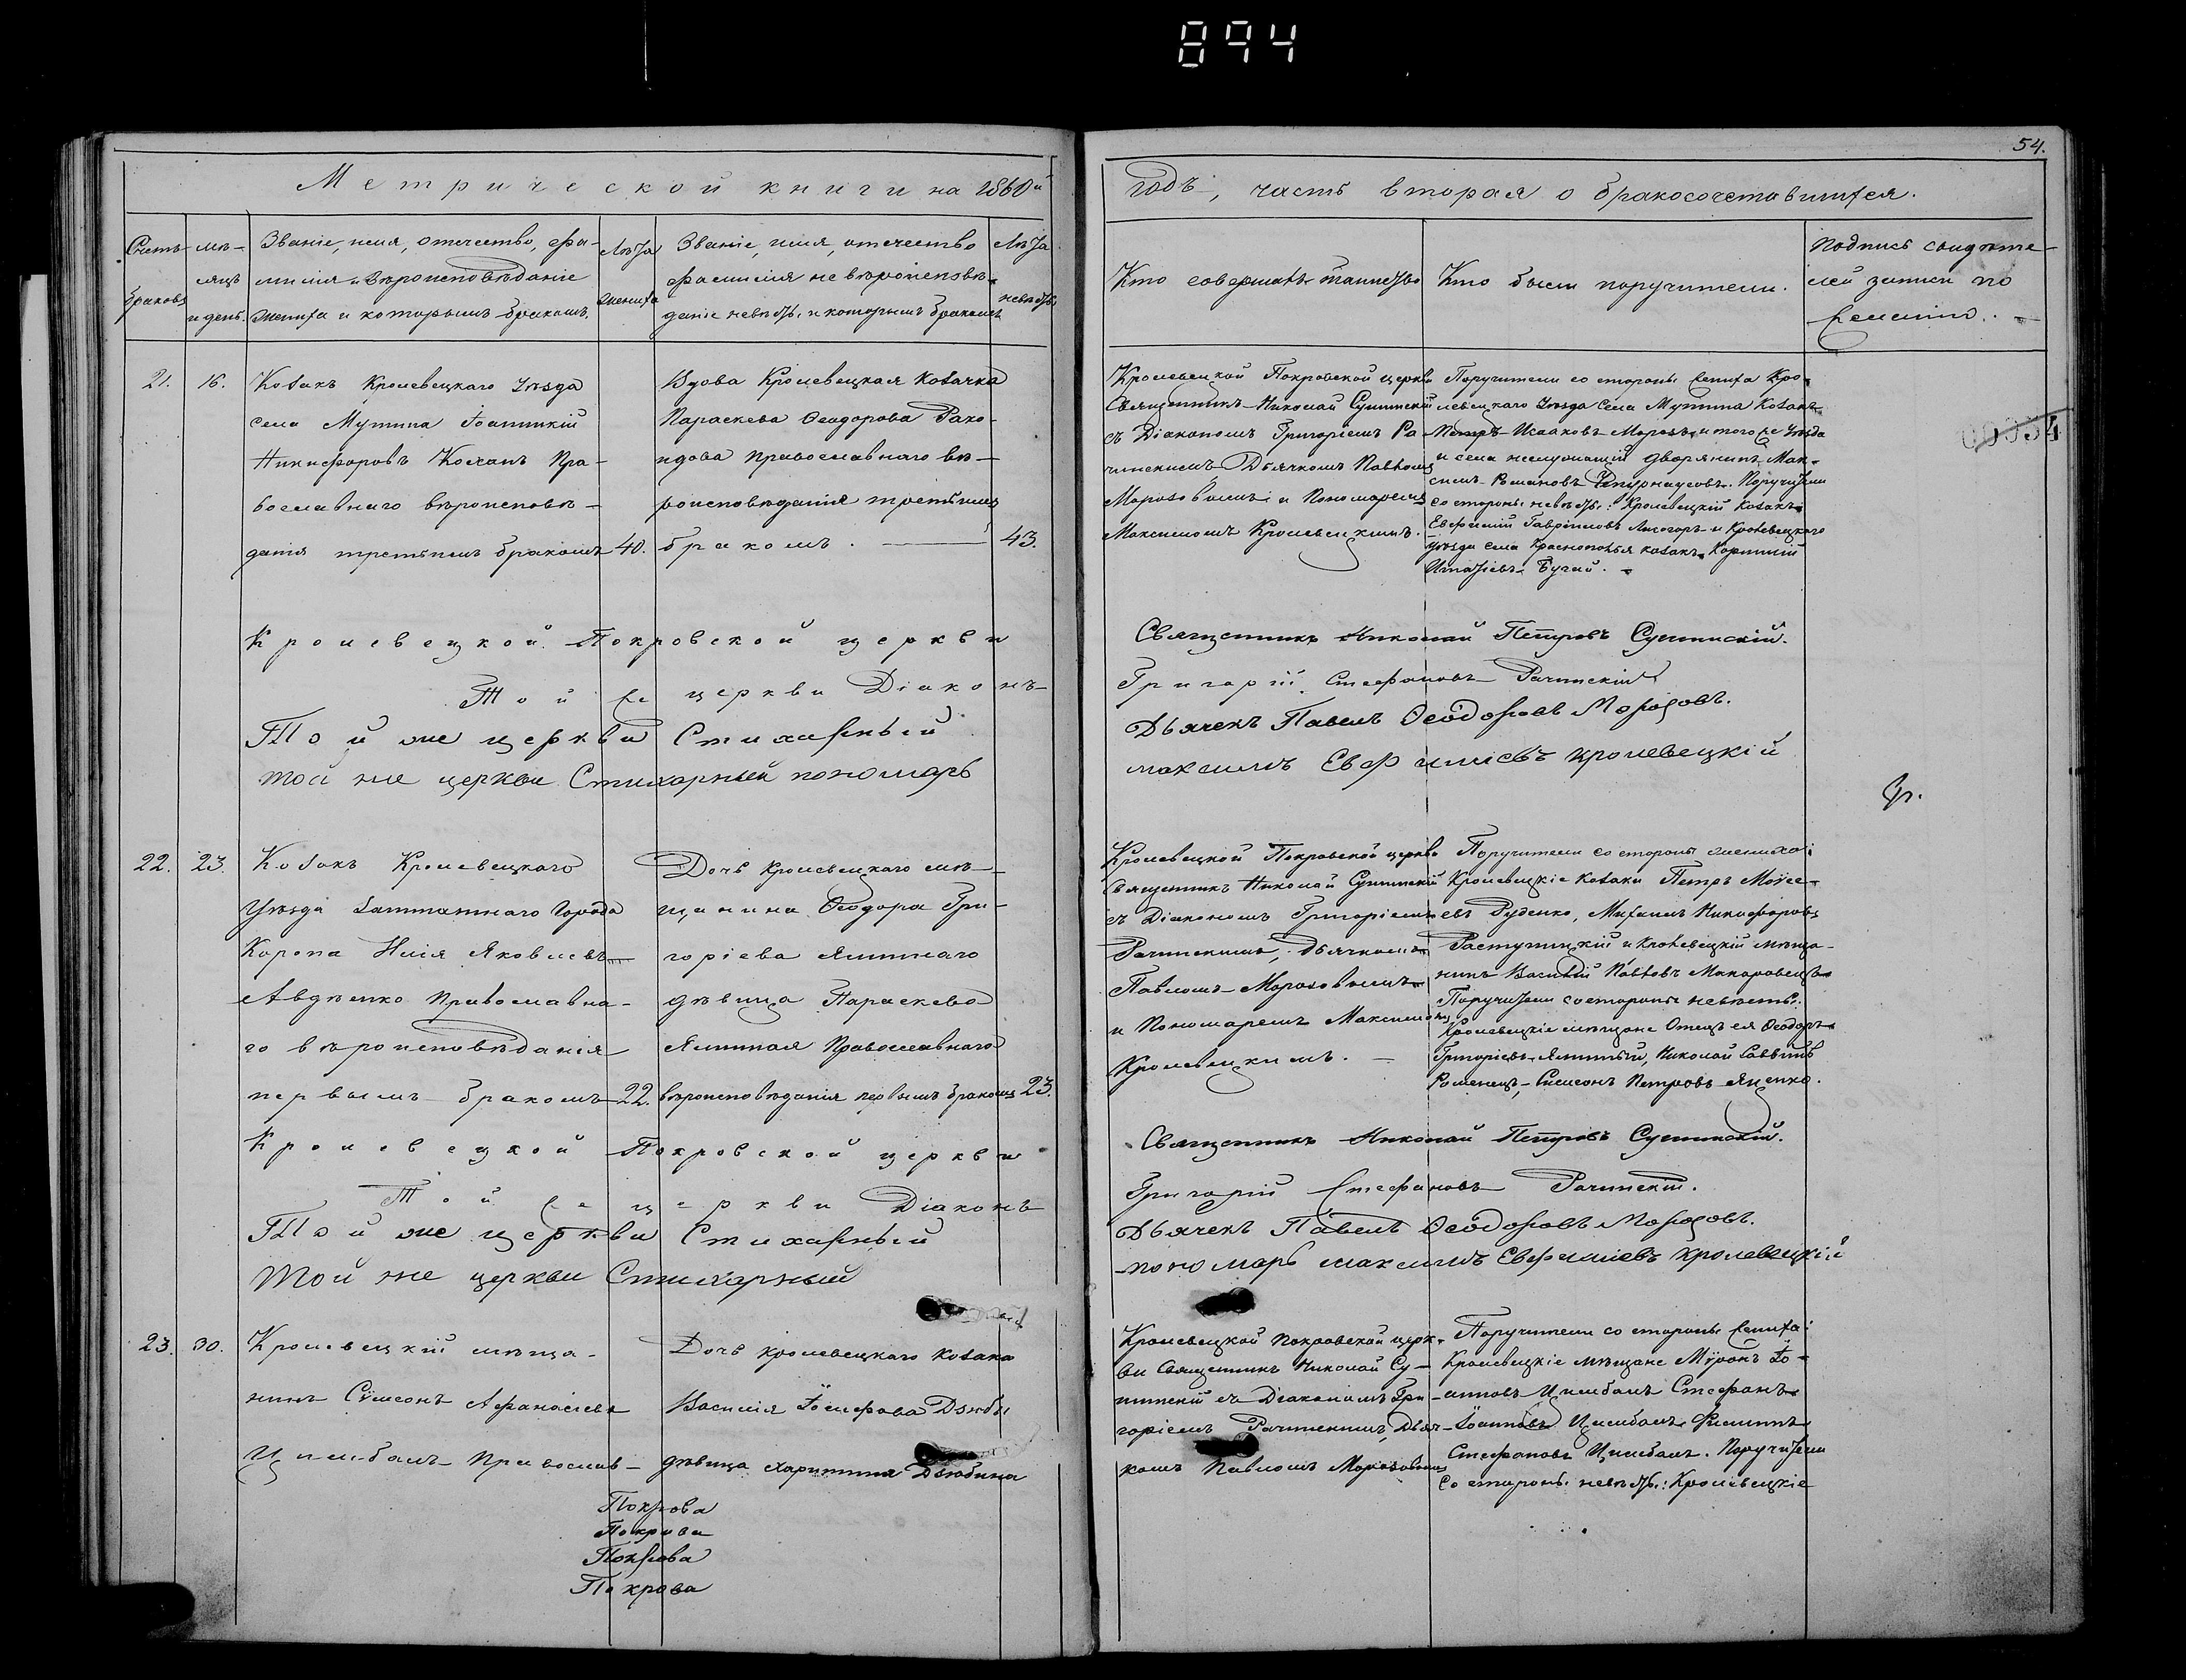 894
54.
Метрической книги на 1860й
годъ, часть вторая о бракосочетавшихся.
Счетъ браковъ
мѣ-
сяцъ
и день.
Званіе, имя, отечество, фа-
милія и вѣроисповѣданіе
жениха и которымъ бракомъ.
Лѣта
жениха
Званіе, имя, отечество
фамилія и вѣроисповѣ-
даніе невѣсты и которымъ бракомъ
Лѣта
невѣсты
Кто совершалъ таинство
Кто были поручители.
Подпись свидѣте-
лей записи по
желанію.
21.
16.
Козакъ Кролевецкаго Уѣзда
села Мутина Іоанникій
Никифоровъ Коханъ Пра-
вославнаго вѣроисповѣ-
данія третьимъ бракомъ
40.
Вдова Кролевецкая Козачка
Параскева Ѳеодорова
православнаго вѣ-
роисповѣданія третьимъ
бракомъ.
43.
Кролевецкой Покровской церкви
Священникъ Николай
съ Діакономъ Григоріемъ Ра-
чинскимъ Дьячкомъ Павломъ
Морозовымъ и Пономаремъ
Максимомъ Кролевецкимъ.
Поручители со стороны жениха Кро-
левецкаго Уѣзда села Мутина Козакъ
Петръ Исааковъ Морозъ и того же Уѣзда
и села неслужащій дворянинъ Мак-
симъ Романовъ Поручители
со стороны невѣсты: Кролевецкій Козакъ
Евфимій Гавріиловъ Лисогоръ и Кролевецкаго
Уѣзда села Краснополья козакъ Корнилій
Игнатіевъ Бугай.
00054
Кролевецкой Покровской церкви
Священникъ Николай Петровъ
Той же церкви Діаконъ
Григорій Стефановъ Рачинскій
Той же церкви Стихарный
Дьячекъ Павелъ Ѳеодоровъ Морозовъ.
той же церкви Стихарный пономарь
максимъ Евфиміевъ кролевецкій
22.
23.
Козакъ Кролевецкаго
Уѣзда Заштатнаго Города
Коропа Илія Яковлевъ
Авдѣенко Православна-
го вѣроисповѣданія
первымъ бракомъ
22.
Дочь Кролевецкаго мѣ-
щанина Ѳеодора Гри-
горіева Ялиннаго
дѣвица Параскева
Ялинная Православнаго
вѣроисповѣданія первымъ бракомъ
23.
Кролевецкой Покровской церкви
Священникъ Николай
съ Діакономъ Григоріемъ
Рачинскимъ, Дьячкомъ
Павломъ Морозовымъ
и Пономаремъ Максимомъ
Кролевецкимъ.
Поручители со стороны жениха:
Кролевецкіе Козаки Петръ Моѵсе-
евъ Руденко, Михаилъ Никифоровъ
и Кролевецкій Мѣща-
нинъ Василій Павловъ Макаровецъ
Поручители со стороны невѣсты:
Кролевецкіе мѣщане Отецъ ея Ѳеодоръ
Григоріевъ Ялинный, Николай Саввинъ
Роменецъ, Симеонъ Петровъ Яценко.
Кролевецкой Покровской церкви
Священникъ Николай Петровъ
Той же церкви Діаконъ
Григорій Стефановъ Рачинскій.
Той же церкви Стихарный
Дьячекъ Павелъ Ѳеодоровъ Морозовъ.
Той же церкви Стихарный
пономарь максимъ Евфиміевъ кролевецкій
23.
30.
Кролевецкій мѣща-
нинъ Сѵмеонъ Афанасіевъ
Цимбалъ Православ-
Дочь кролевецкаго Козака
Василія Іосифова Дзюбы
дѣвица Харитина Дзюбина
Кролевецкой Покровской церк-
ви Священникъ Николай
съ Діакономъ Гри-
горіемъ Рачинскимъ, Дьяч-
комъ Павломъ Морозовымъ
Поручители со стороны жениха:
Кролевецкіе мѣщане Мѵронъ Іо-
анновъ Цимбалъ Стефанъ
Іоанновъ Цимбалъ Филиппъ
Стефановъ Цимбалъ. Поручители
со стороны невѣсты: Кролевецкіе
Покрова
Покрова
Покрова
Покрова